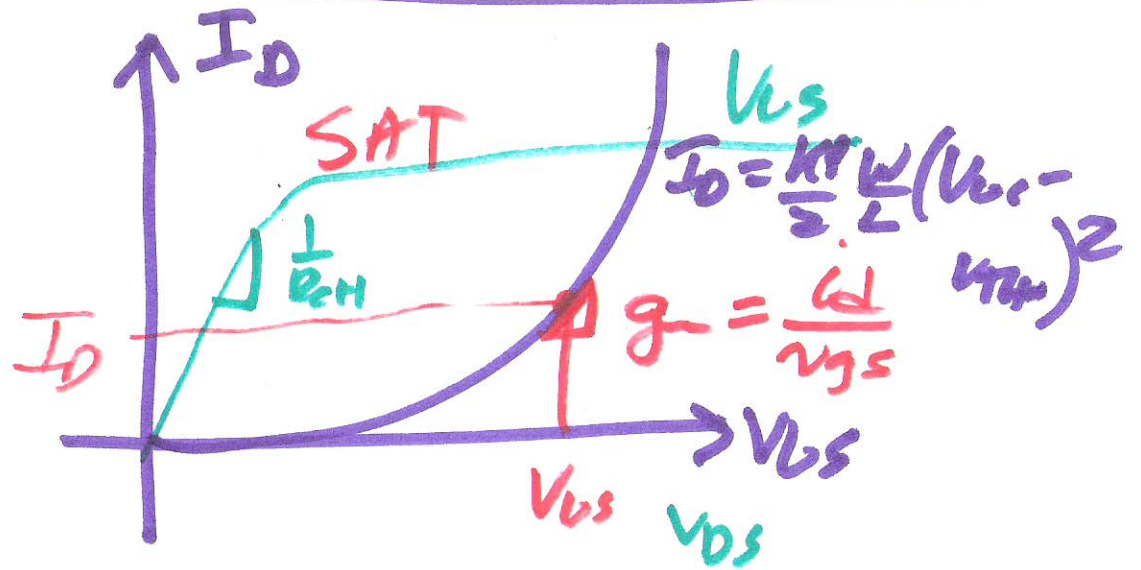 I_D
SAT
V_GS
I_D = KP/2 W/L (V_GS -
V_THN)^2
1/R_CH
g_m = i_d/v_gs
I_D
V_GS
V_GS
V_DS